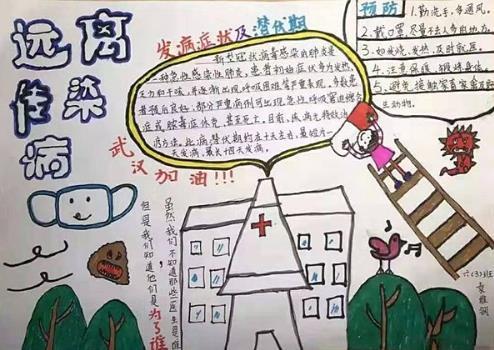 远离
传染
病
发病症状及潜伏期
新型冠状病毒感染的肺炎是
一种急性感染性肺炎，患者初始症状多为发热、
乏力和干咳，并逐渐出现呼吸困难等严重表现。多数患
者预后良好，部分严重病例可出现急性呼吸窘迫综合
征或脓毒症休克，甚至死亡。目前，
此病潜伏期约在十天左右，最短为一
天发病，最长十四天发病。
预防
1. 勤洗手，多通风。
2. 戴口罩，尽量不去人多的地方。
3. 如发烧，发热，及时就医。
4. 注意保暖，锻炼身体。
5. 避免接触家畜家禽或野
生动物。
武汉加油!!!
虽然，我们不知道那些医生是谁
但是我们知道他们是为了谁
六(3)班